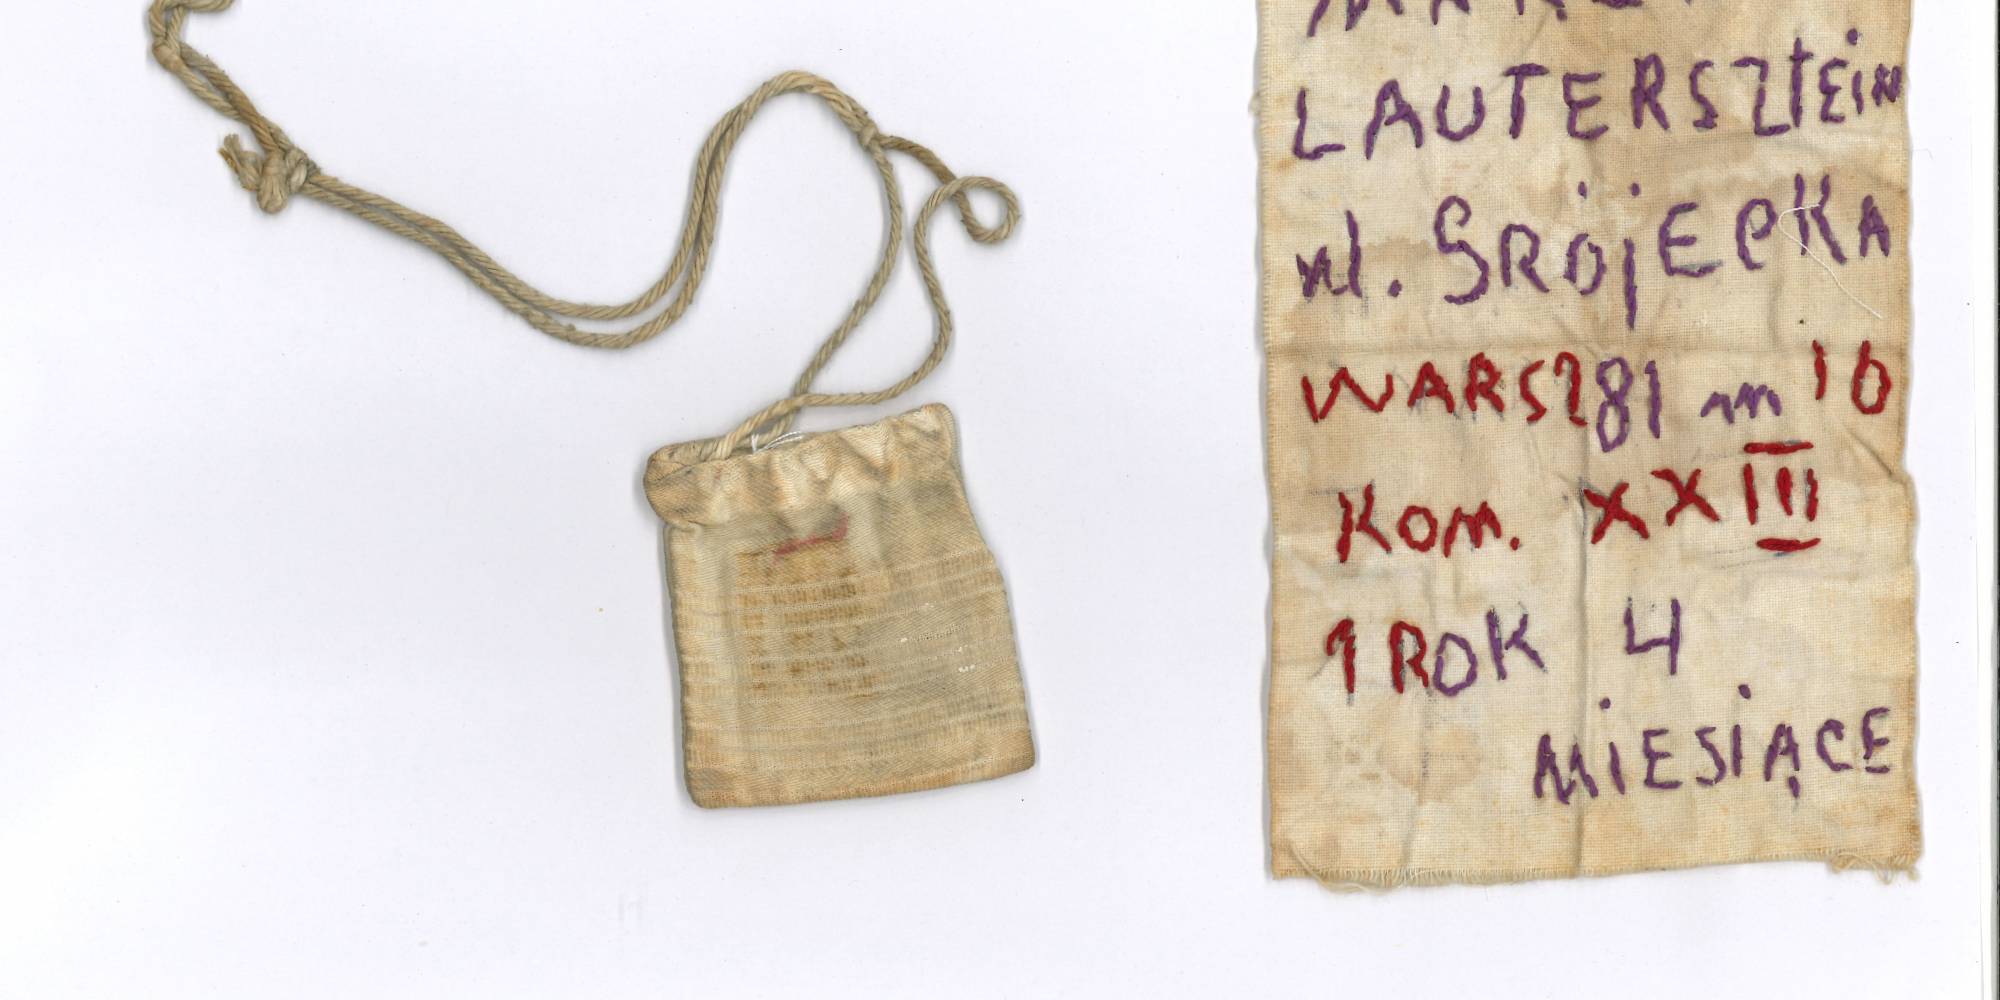 LAUTERSZtEiN
ul. SRójECKA
WARSZ 81 m 10
Kom. XXIII
1 ROK 4
MiESiĄCE